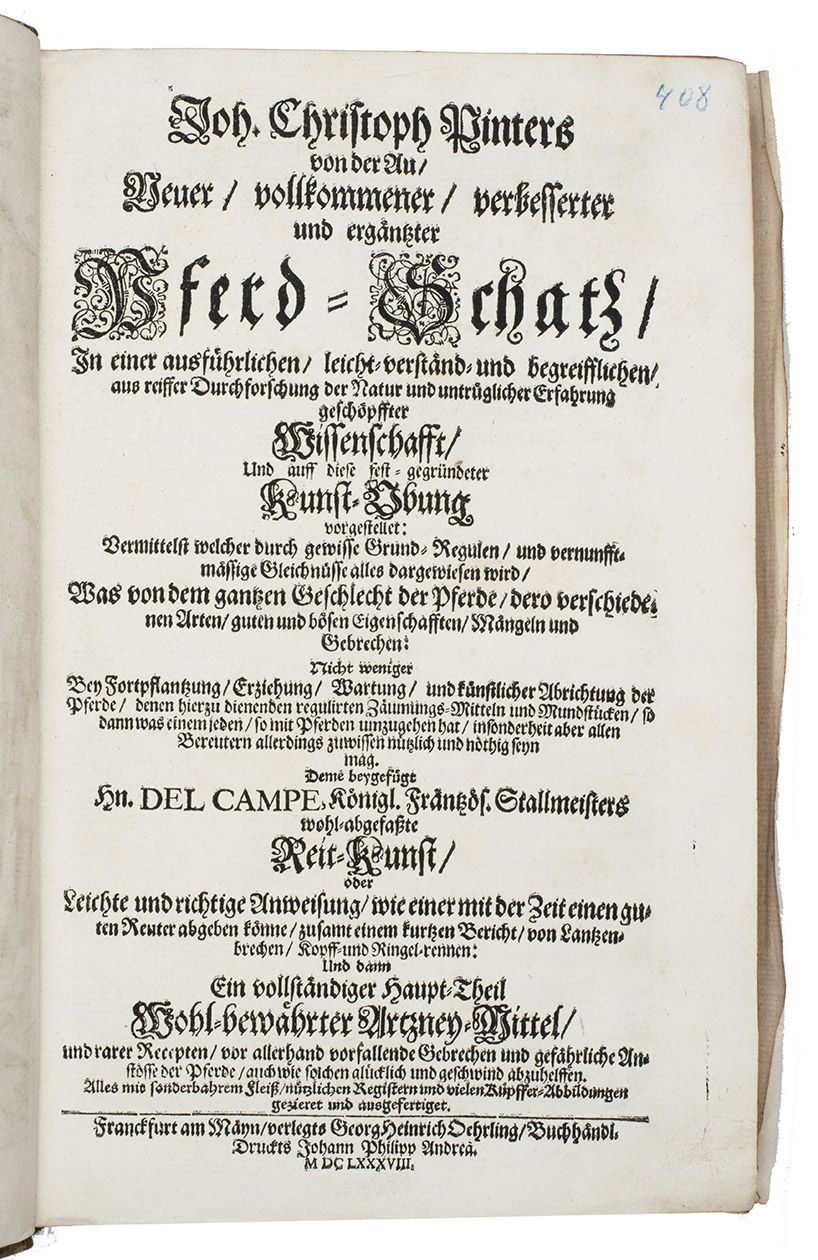 408
Joh. Christoph Pinters
von der Au/
Neuer / vollkommener / verbesserter
und ergäntzter
Pferd-Schatz/
In einer ausführlichen/ leicht-verständ- und begreifflichen/
aus reiffer Durchforschung der Natur und untrüglicher Erfahrung
geschöpffter
Wissenschafft/
Und auff diese fest-gegründeter
Kunst-Ubung
vorgestellet:
Vermittelst welcher durch gewisse Grund-Regulen/ und vernunfft-
mässige Gleichnüsse alles dargewiesen wird/
Was von dem gantzen Geschlecht der Pferde/dero verschiede-
nen Arten/ guten und bösen Eigenschafften/ Mängeln und
Gebrechen:
Nicht weniger
Bey Fortpflantzung/ Erziehung/ Wartung/ und künstlicher Abrichtung der
Pferde/ denen hierzu dienenden regulirten Zäumungs-Mitteln und Mundstücken/ so
dann was einem jeden/ so mit Pferden umzugehen hat/ insonderheit aber allen
Bereutern allerdings zuwissen nützlich und nöthig seyn
mag.
Deme beygefügt
Hn. DEL CAMPE, Königl. Fräntzös. Stallmeisters
wohl-abgefaßte
Reit-Kunst/
oder
Leichte und richtige Anweisung/ wie einer mit der Zeit einen gu-
ten Reuter abgeben könne/ zusamt einem kurtzen Bericht/ von Lantzen-
brechen/ Kopff- und Ringel-rennen:
Und dann
Ein vollständiger Haupt-Theil
Wohl-bewährter Artzney-Mittel/
und rarer Recepten/ vor allerhand vorfallende Gebrechen und gefährliche An-
stösse der Pferde/ auch wie solchen glücklich und geschwind abzuhelffen.
Alles mit sonderbahrem Fleiß/ nützlichen Registern und vielen Kupffer-Abbildungen
gezieret und ausgefertiget.
Franckfurt am Mäyn/ verlegts Georg Heinrich Oehrling/ Buchhändl.
Druckts Johann Philipp Andreä.
M DC LXXXVIII.